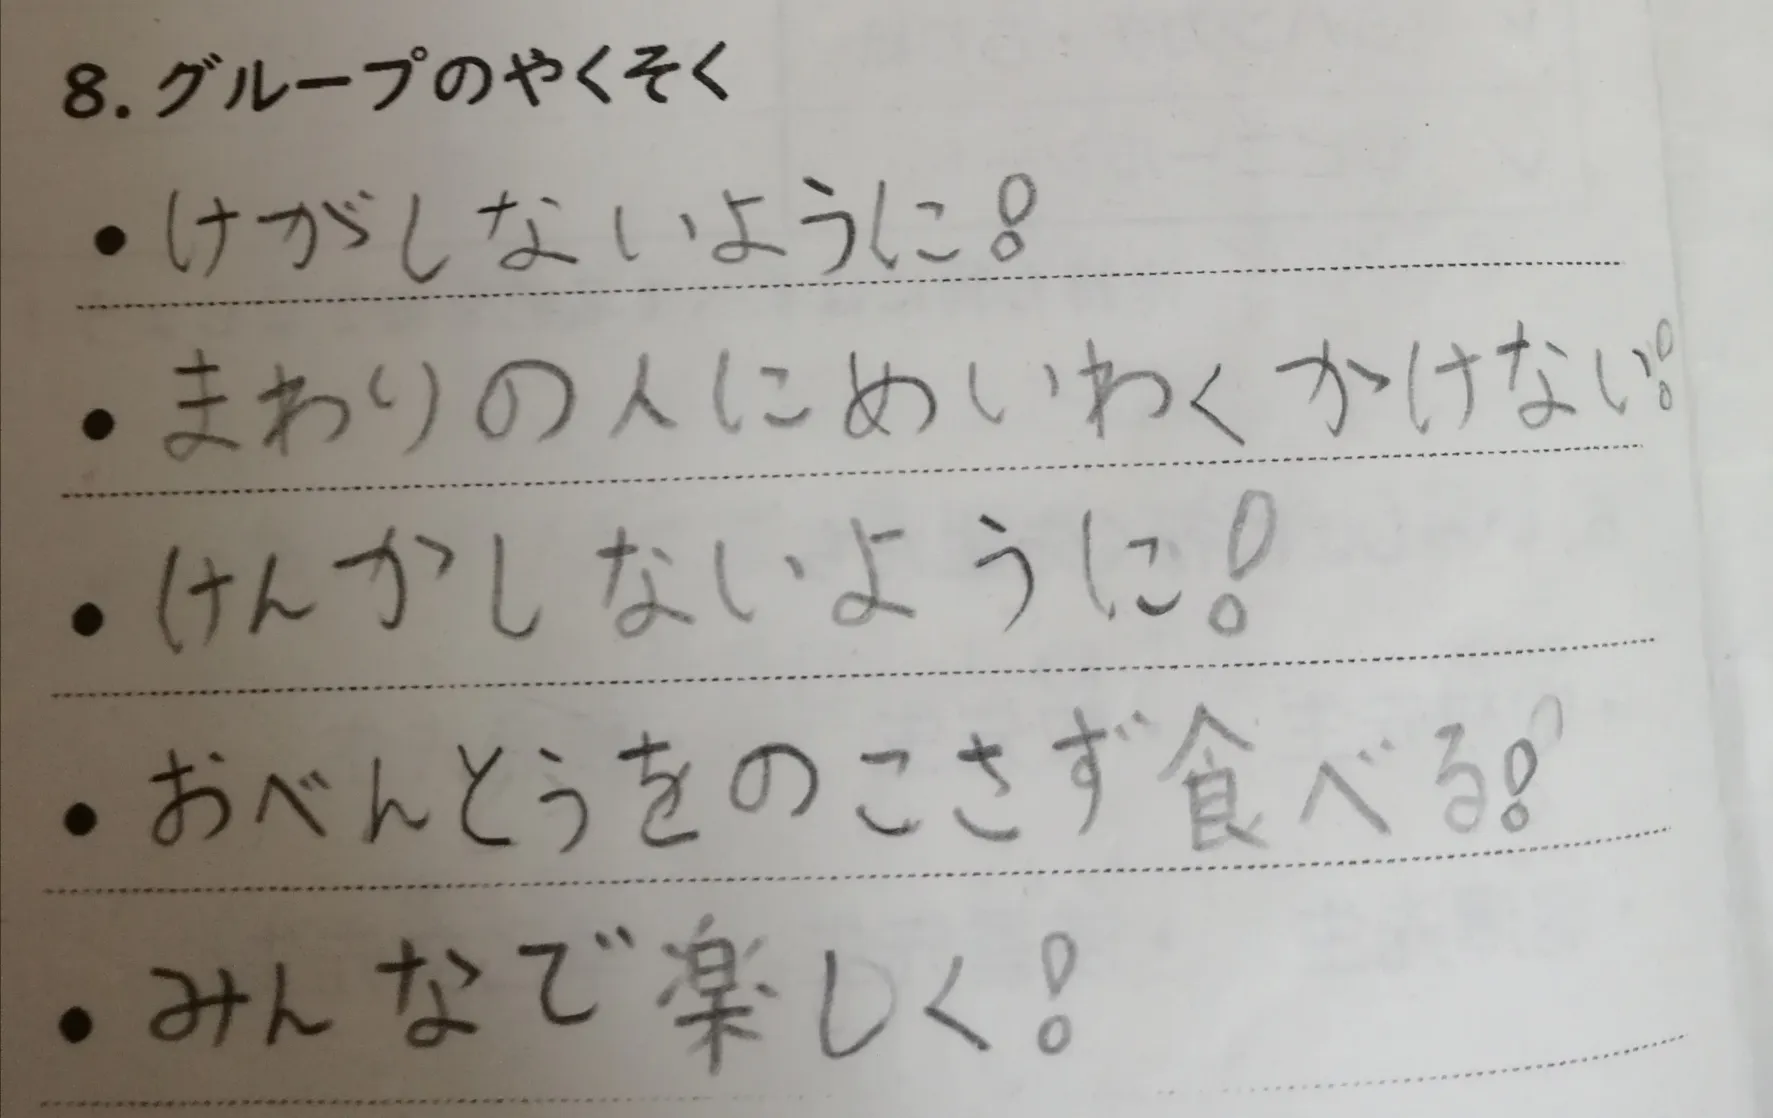 8. グループのやくそく
• けがしないように!
• まわりの人にめいわくかけない!
• けんかしないように!
• おべんとうをのこさず食べる!
• みんなで楽しく!